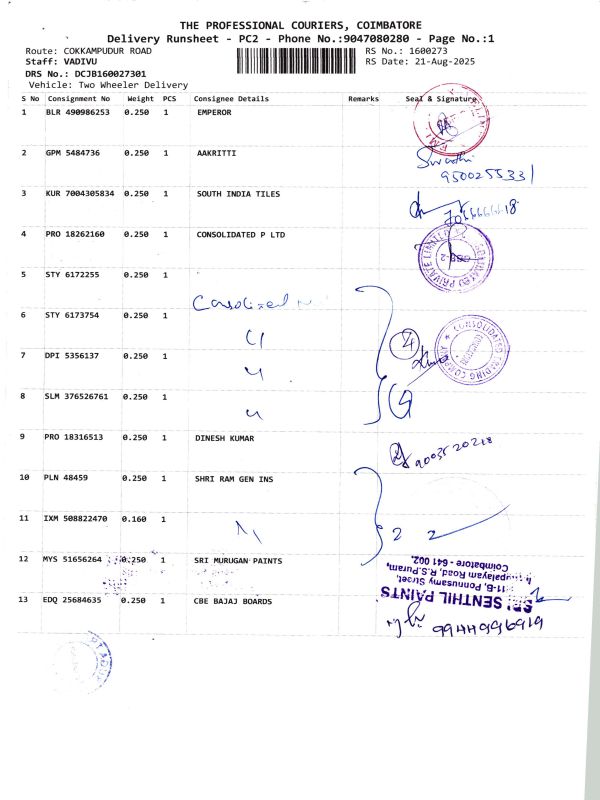 THE PROFESSIONAL COURIERS, COIMBATORE
Delivery Runsheet - PC2 - Phone No.:9047080280 - Page No.:1
Route: COKKAMPUDUR ROAD RS No.: 1600273
Staff: VADIVU RS Date: 21-Aug-2025
DRS No.: DCJB160027301
Vehicle: Two Wheeler Delivery
S No Consignment No Weight PCS Consignee Details Remarks Seal & Signature
1 BLR 490986253 0.250 1 EMPEROR
2 GPM 5484736 0.250 1 AAKRITTI
Swathi
9500255331
3 KUR 7004305834 0.250 1 SOUTH INDIA TILES
4 PRO 18262160 0.250 1 CONSOLIDATED P LTD
PRIVATE LIMITED
5 STY 6172255 0.250 1
6 STY 6173754 0.250 1
4
CONSOLIDATED TRADING COMPANY
7 DPI 5356137 0.250 1
8 SLM 376526761 0.250 1
9 PRO 18316513 0.250 1 DINESH KUMAR
10 PLN 48459 0.250 1 SHRI RAM GEN INS
11 IXM 508822470 0.160 1
2 2
12 MYS 51656264 0.250 1 SRI MURUGAN PAINTS
SRI SENTHIL PAINTS
11-B, Ponnusamy Street,
Road, R.S.Puram,
Coimbatore - 641 002.
13 EDQ 25684635 0.250 1 CBE BAJAJ BOARDS
9944996919